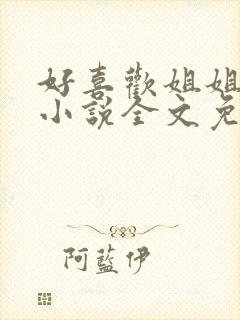 好喜歡姐姐
小說全文免
阿藍伊